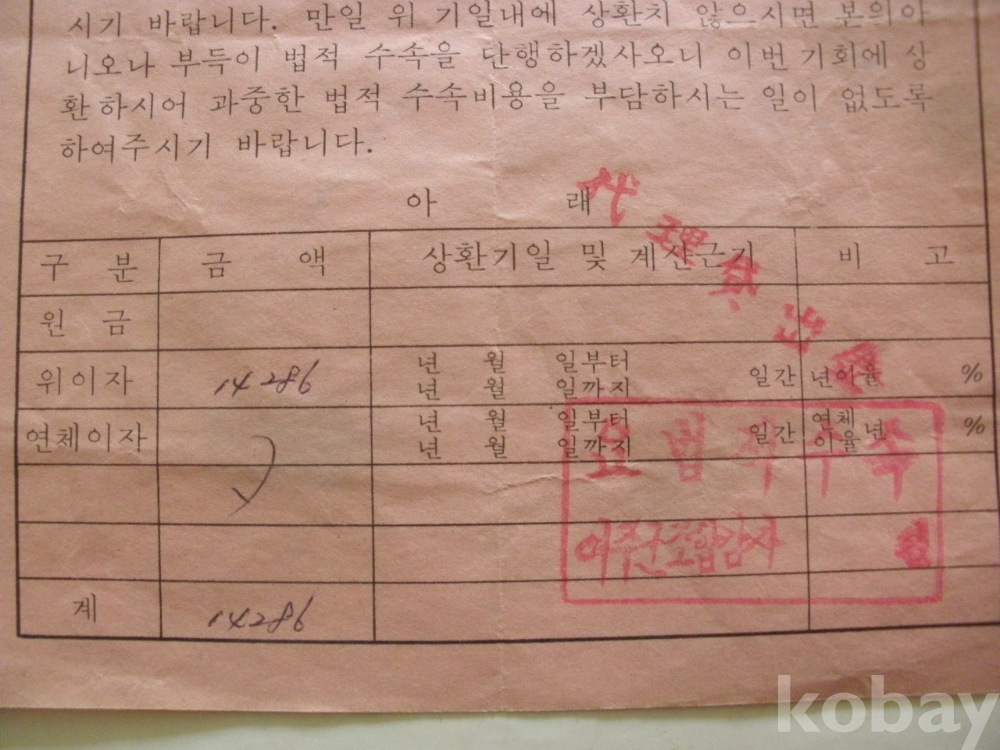 시기 바랍니다. 만일 위 기일내에 상환치 않으시면 본의아
니오나 부득이 법적 수속을 단행하겠사오니 이번 기회에 상
환하시어 과중한 법적 수속비용을 부담하시는 일이 없도록
하여주시기 바랍니다.
아 래
구 분 금 액 상환기일 및 계산근거 비 고
원 금
위이자 14286 년 월 일부터 년 월 일까지 일간 년이율 %
연체이자 년 월 일부터 년 월 일까지 일간 연체이율년 %
계 14286
代理
요법적수속
여주군조합감사
kobay